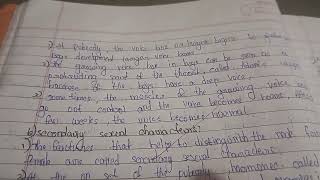 1) At puberty, the voice box or larynx begins to
boys developed larger voice boxes.
2) The growing voice box in boys can be seen as a
protruding part of the throat, called Adam's
because of this boys have a deep voice.
3) Some times, the muscles of the growing voice
go out control and the voice becomes hoarse. After
few weeks the voice becomes normal.
secondary sexual characters:
1) The features that helps to distinguish the male from
female are called secondary sexual characters.
2) At the on set of the puberty, hormones called